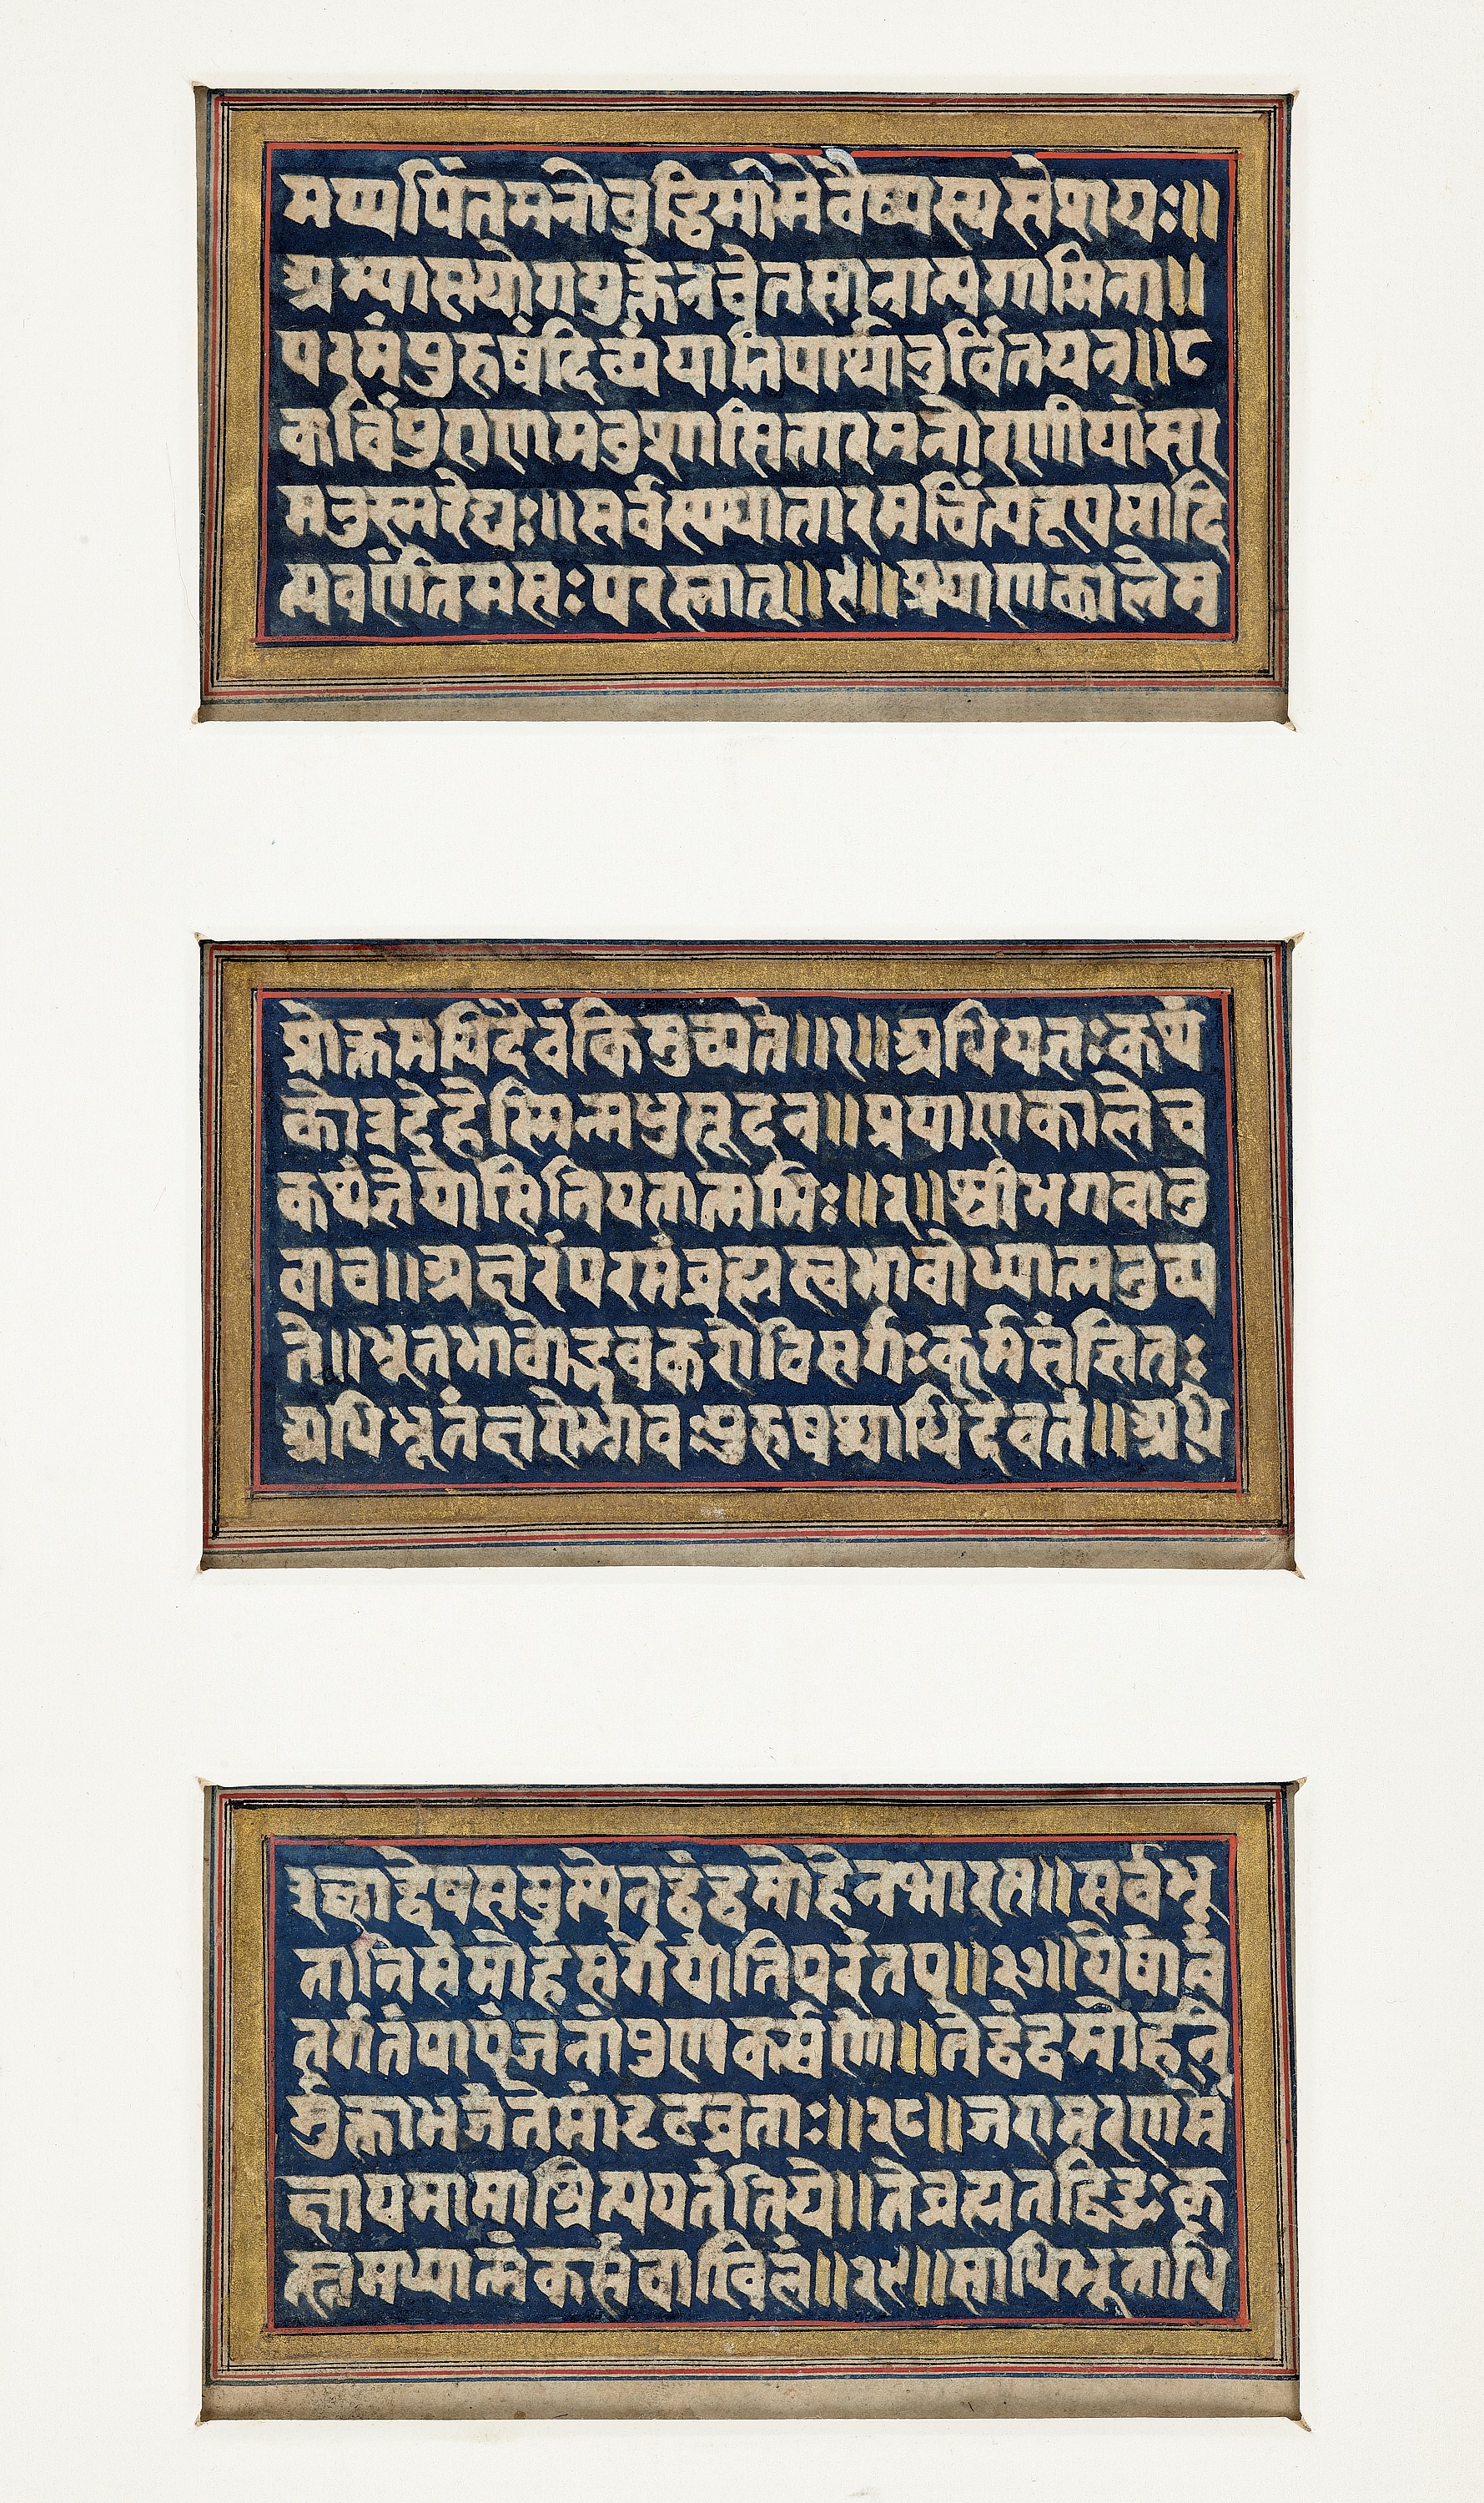 मय्यर्पितमनोबुद्धिर्मामेवैष्यस्यसंशयः॥
अभ्यासयोगयुक्तेनचेतसानान्यगामिना॥
परमंपुरुषंदिव्यंयातिपार्थानुचिंतयन॥८
कविंपुराणमनुशासितारमनोरणीयांसा
मनुस्मरेद्यः॥सर्वस्यधातारमचिंत्यरूपमादि
त्यवर्णंतमसः परस्तात्॥९॥प्रयाणकालेम
प्रोक्तमधिदैवंकिमुच्यते॥१॥अधियज्ञःकथं
कोत्रदेहेस्मिन्मधुसूदन॥प्रयाणकालेच
कथंज्ञेयोसिनियतात्मभिः॥२॥श्रीभगवानु
वाच॥अक्षरंपरमंब्रह्मस्वभावोध्यात्ममुच्य
ते॥भूतभावोद्भवकरोविसर्गःकर्मसंज्ञितः
अधिभूतंक्षरोभावःपुरुषश्चाधिदैवतं॥अधि
इच्छाद्वेषसमुत्थेनद्वंद्वमोहेनभारत॥सर्वभू
तानिसंमोहंसर्गेयांतिपरंतप॥२७॥येषांत्वं
तर्गतंपापंजनानांपुण्यकर्मणां॥तेद्वंद्वमोहनि
र्मुक्ताभजंतेमांदृढव्रताः॥२८॥जरामरणमो
क्षायमामाश्रित्ययतंतिये॥तेब्रह्मतद्विदुःकृ
त्स्नमध्यात्मंकर्मचाखिलं॥२९॥साधिभूताधि